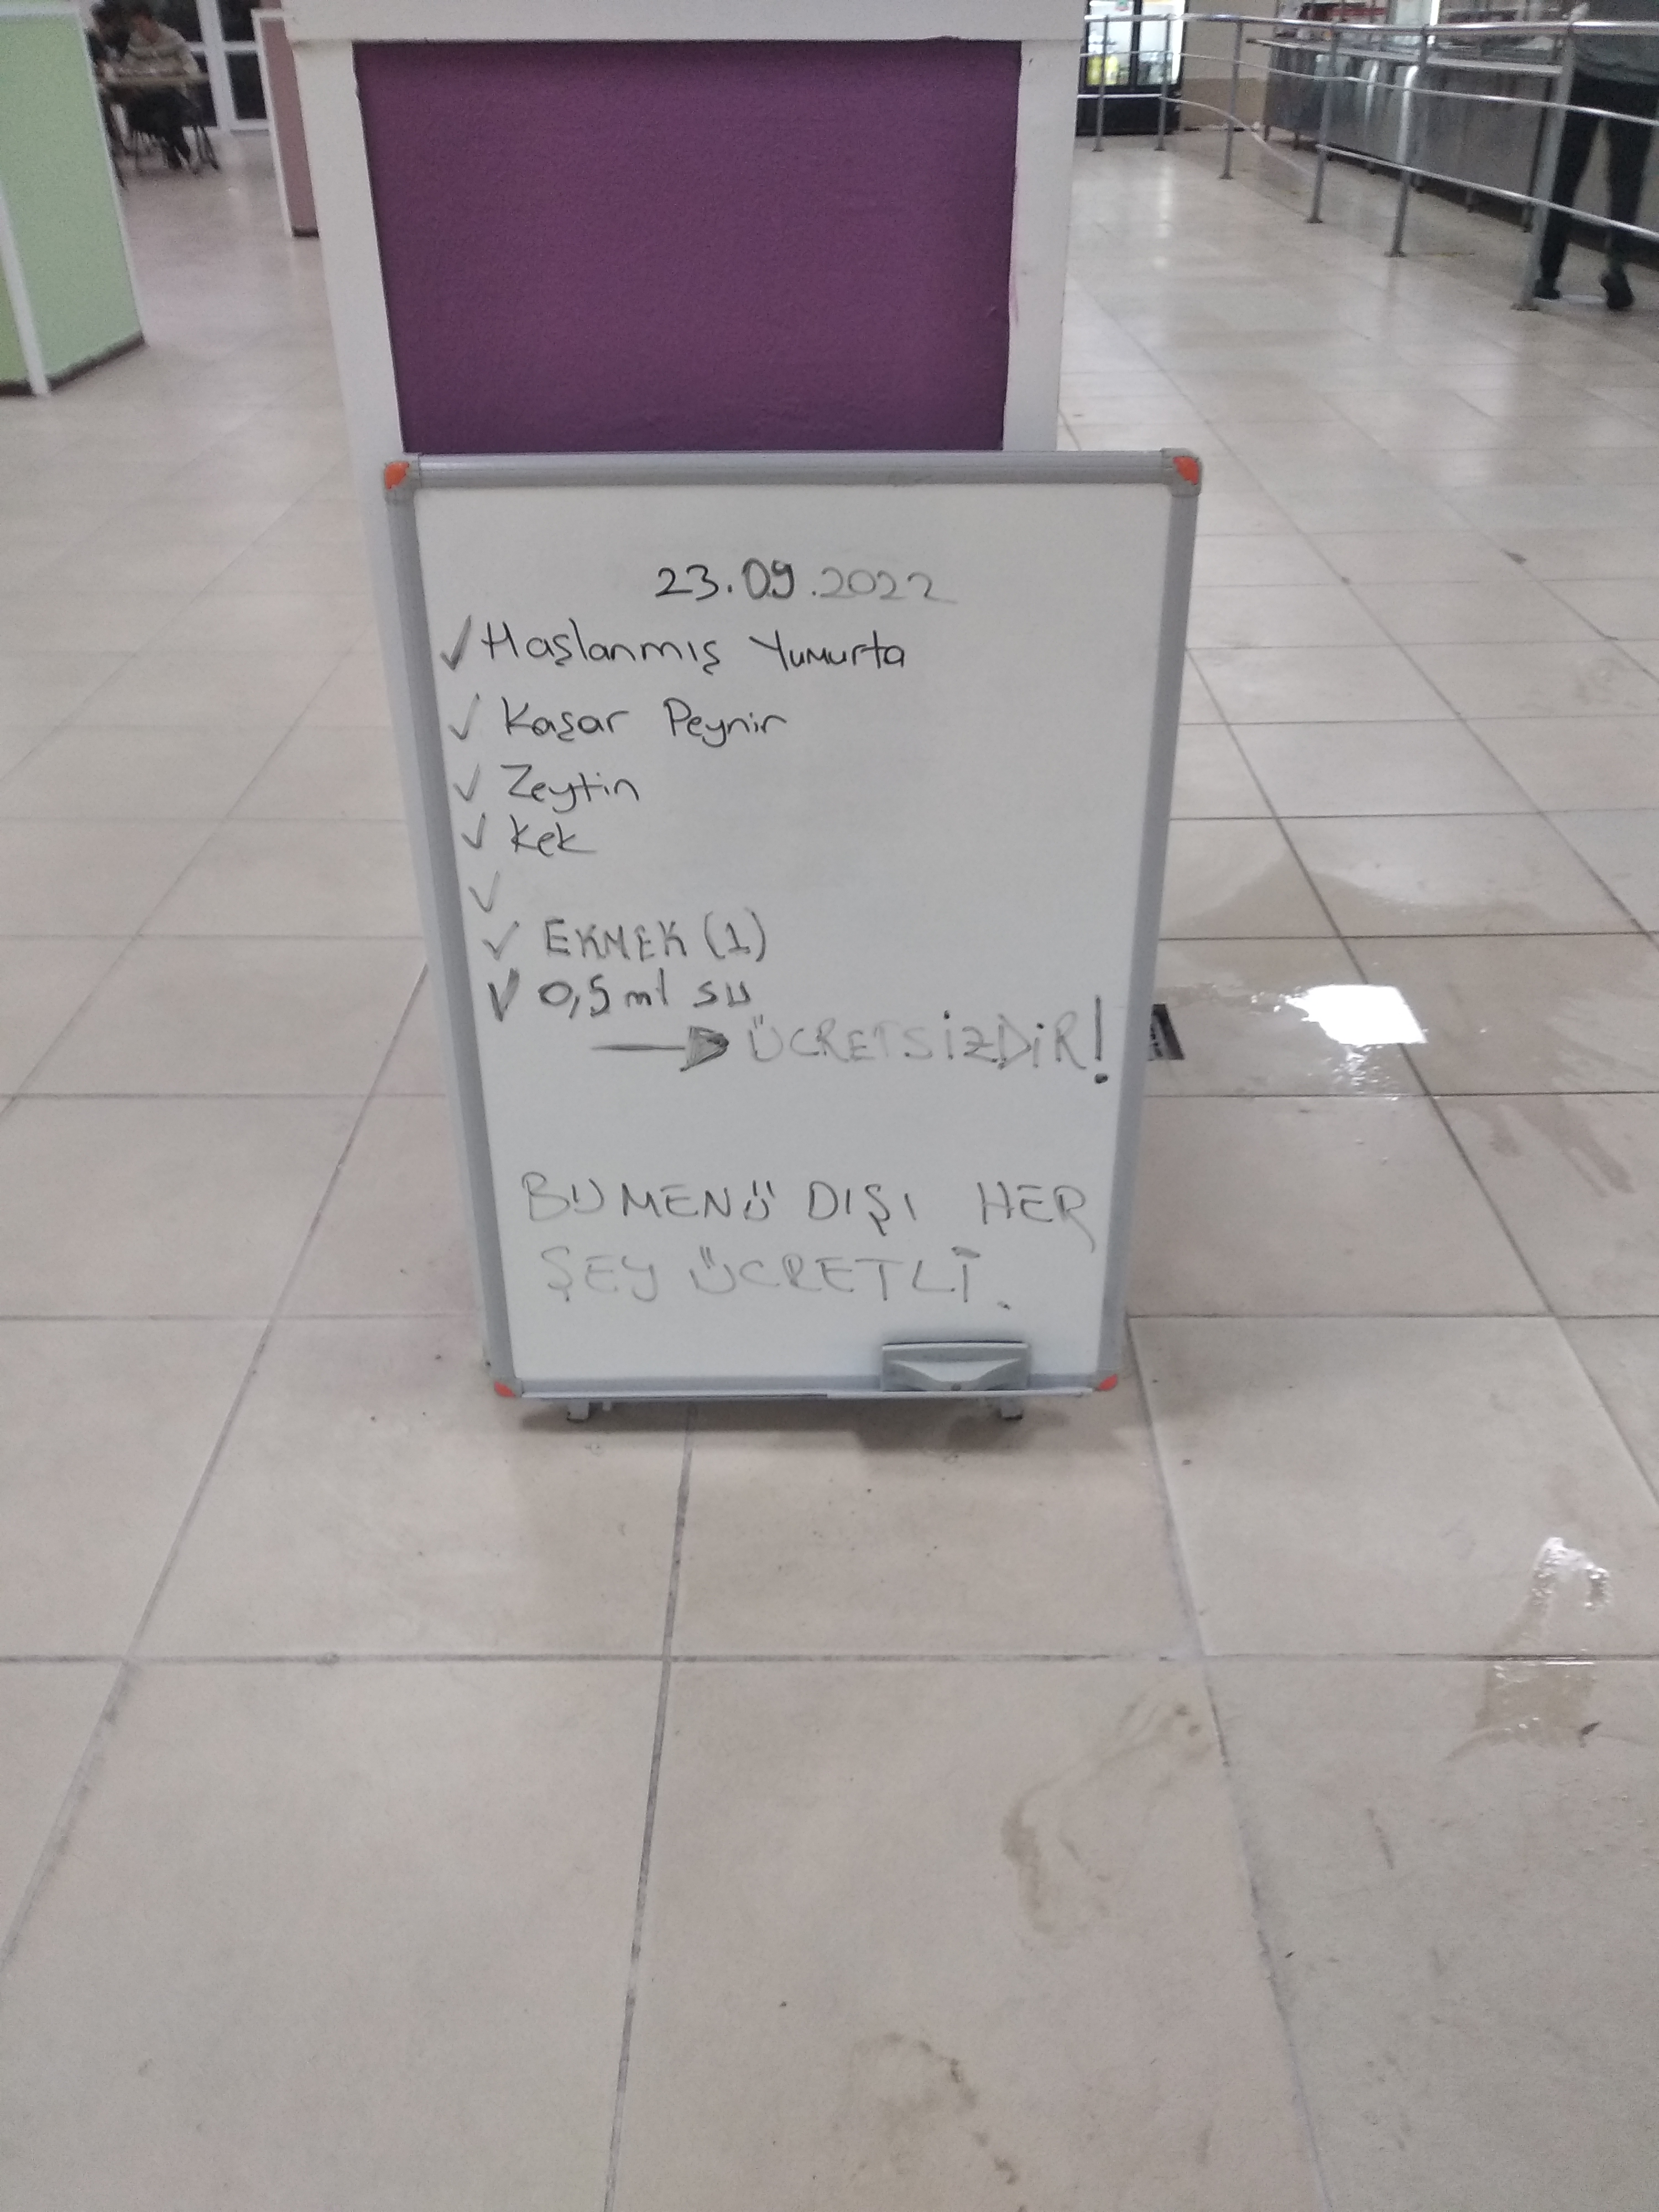 23.09.2022
✓ Haşlanmış Yumurta
✓ Kaşar Peynir
✓ Zeytin
✓ Kek
✓
✓ EKMEK (1)
✓ 0,5 ml su
→ ÜCRETSİZDİR!
BU MENÜ DIŞI HER
ŞEY ÜCRETLİ.